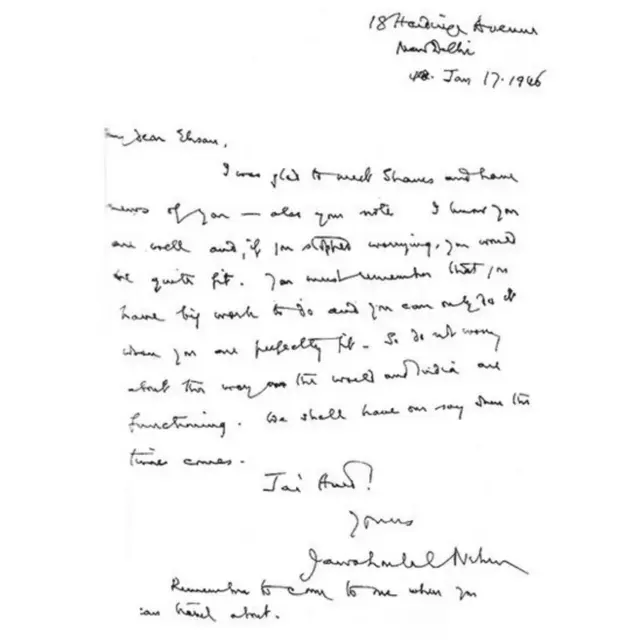 18 Hardinge Avenue
New Delhi
Jan 17. 1946
My dear Ehsan,
I was glad to meet Shanes and have
news of you — also your note I know you
are well and, if you stopped worrying, you would
be quite fit. You must remember that you
have big work to do and you can only do it
when you are perfectly fit. So do not worry
about the way the world and India are
functioning. We shall have our say when the
time comes.
Jai Hind!
Yours
Jawaharlal Nehru
Remember to come to me when you
can travel about.